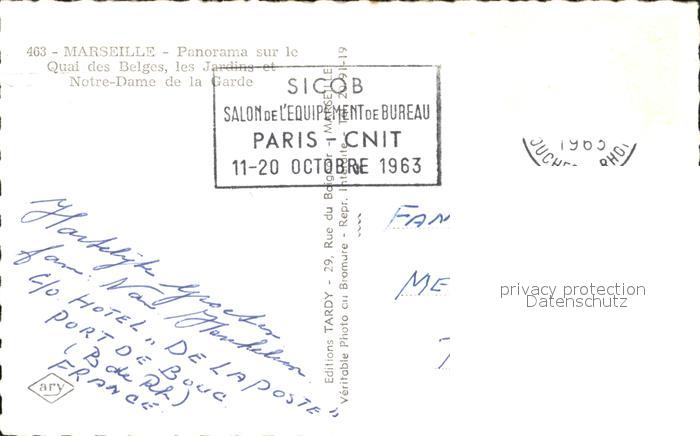 463 - MARSEILLE - Panorama sur le
Quai des Belges, les Jardins et
Notre-Dame de la Garde
SICOB
SALON DE L'EQUIPEMENT DE BUREAU
PARIS - CNIT
11-20 OCTOBRE 1963
1963
OUCHE RHO
Hartelijke groeten
fam. Van
C/O HOTEL "DE LA POSTE"
PORT DE BOUC
(B de Rh)
FRANCE
ary
Editions TARDY - 29, Rue du Baignoir - MARSEILLE
Véritable Photo au Bromure - Repr. Interdite - Tél. 20-91-19
FAM
ME
privacy protection
Datenschutz